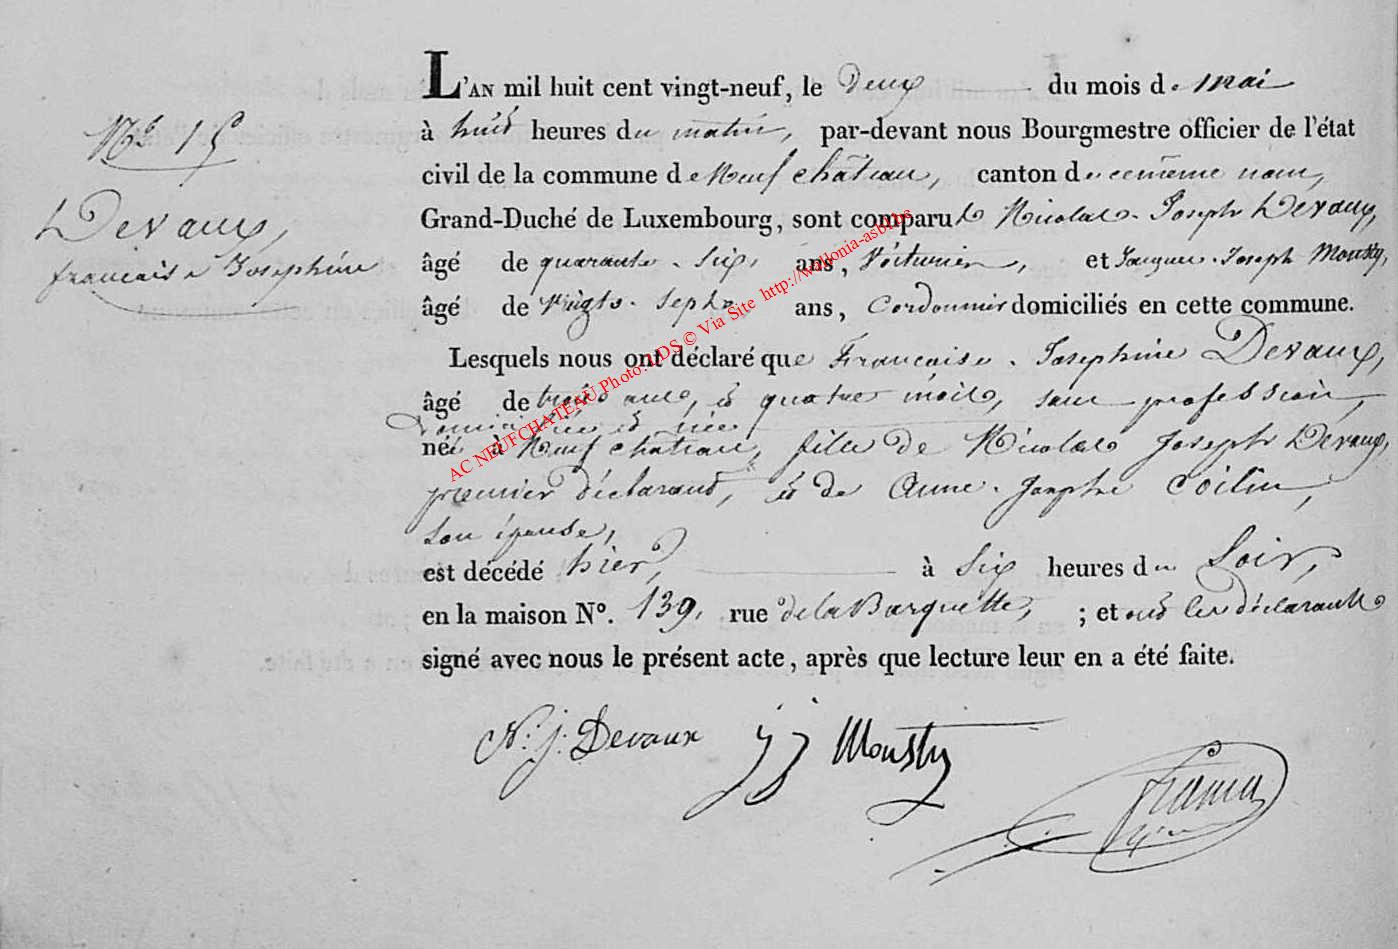 L'AN mil huit cent vingt-neuf, le Deux du mois de mai
No 15
à huit heures du matin, par-devant nous Bourgmestre officier de l'état
civil de la commune de Neufchâteau, canton de ce même nom,
Devaux,
françoise Josephine
Grand-Duché de Luxembourg, sont comparus Nicolas Joseph Devaux,
âgé de quarante-six, ans, Voiturier, et Jacques Joseph Mousty,
âgé de vingt-sept ans, Cordonnier domiciliés en cette commune.
Lesquels nous ont déclaré que Françoise Josephine Devaux,
âgé de trois ans, et quatre mois, sans profession,
domiciliée et née
née à Neufchateau, fille de Nicolas Joseph Devaux,
premier déclarant, et de Anne Josephe
son épouse,
est décédé hier, à six heures du soir,
en la maison No. 139, rue de la Barquette, ; et ont les déclarants
signé avec nous le présent acte, après que lecture leur en a été faite.
N: j: Devaux j j Mousty
AC NEUFCHATEAU Photo: LDS © Via Site http://wallonia-asbl.be